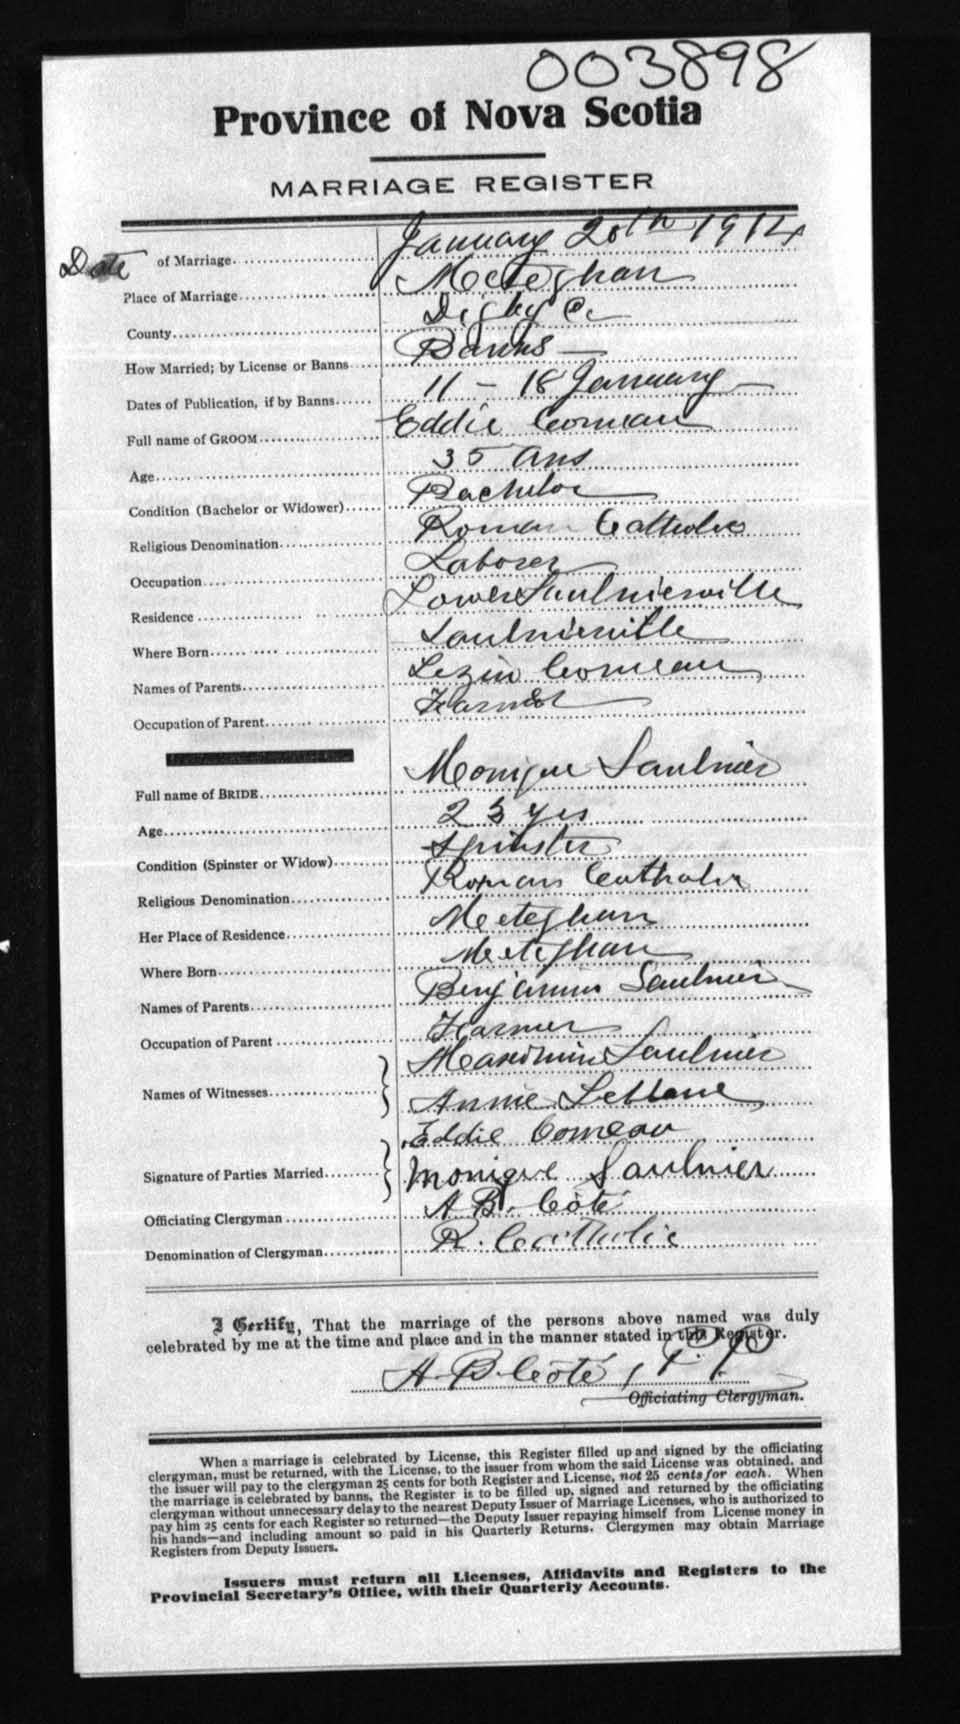 003898
Province of Nova Scotia
MARRIAGE REGISTER
Date of Marriage January 20th 1914
Place of Marriage Meteghan
County Digby Co
How Married; by License or Banns Banns —
Dates of Publication, if by Banns 11 – 18 January —
Full name of GROOM Eddie Comeau
Age 35 ans
Condition (Bachelor or Widower) Bachelor
Religious Denomination Roman Catholic
Occupation Laborer
Residence Lower Saulnierville
Where Born Saulnierville
Names of Parents Lezin Comeau
Occupation of Parent Farmer
Full name of BRIDE Monique Saulnier
Age 23 yrs
Condition (Spinster or Widow) Spinster
Religious Denomination Roman Catholic
Her Place of Residence Meteghan
Where Born Meteghan
Names of Parents Benjamin Saulnier
Occupation of Parent Farmer
Names of Witnesses Maximin Saulnier
Annie LeBlanc
Eddie Comeau
Signature of Parties Married Monique Saulnier
Officiating Clergyman A B. Côté
Denomination of Clergyman R. Catholic
I Certify, That the marriage of the persons above named was duly
celebrated by me at the time and place and in the manner stated in this Register.
A. B Côté, P.P.
Officiating Clergyman.
When a marriage is celebrated by License, this Register filled up and signed by the officiating
clergyman, must be returned, with the License, to the issuer from whom the said License was obtained, and
the issuer will pay to the clergyman 25 cents for both Register and License, not 25 cents for each. When
the marriage is celebrated by banns, the Register is to be filled up, signed and returned by the officiating
clergyman without unnecessary delay to the nearest Deputy Issuer of Marriage Licenses, who is authorized to
pay him 25 cents for each Register so returned—the Deputy Issuer repaying himself from License money in
his hands—and including amount so paid in his Quarterly Returns. Clergymen may obtain Marriage
Registers from Deputy Issuers.
Issuers must return all Licenses, Affidavits and Registers to the
Provincial Secretary's Office, with their Quarterly Accounts.